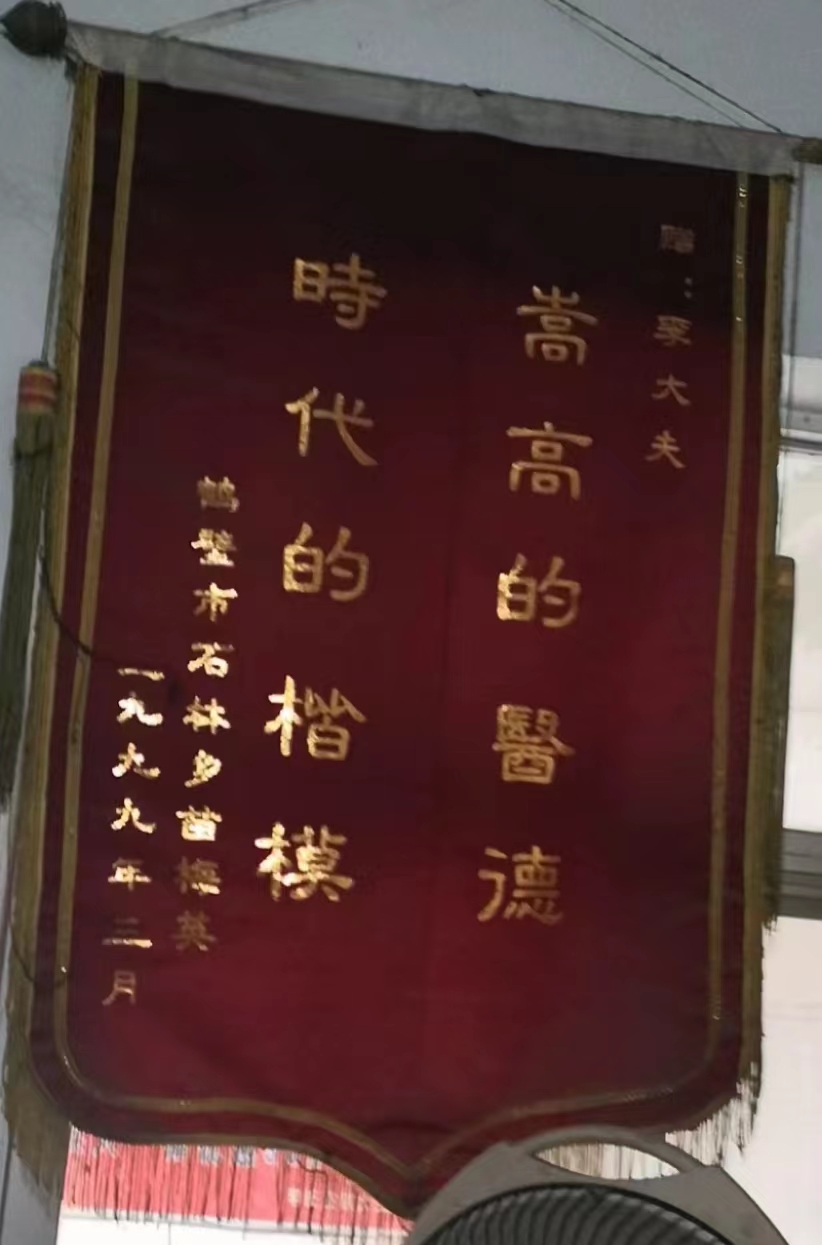 赠：李大夫
嵩高的醫德
時代的楷模
鹤壁市石林乡苗梅英
一九九九年三月